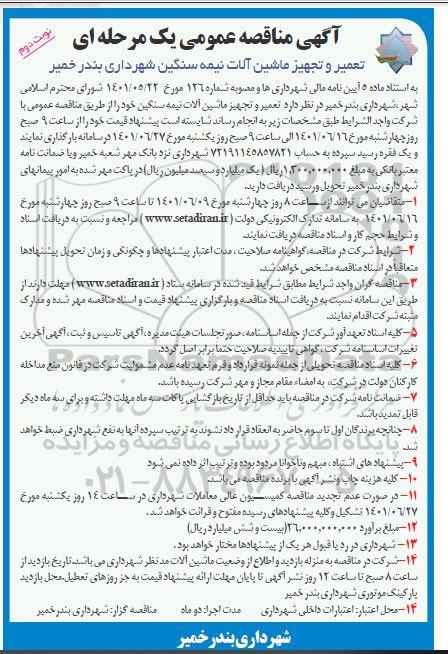 آگهی مناقصه عمومی یک مرحله ای
نوبت دوم
تعمیر و تجهیز ماشین آلات نیمه سنگین شهرداری بندر خمیر
به استناد ماده ۵ آیین نامه مالی شهرداری ها و مصوبه شماره ۱۲۶ مورخ ۱۴۰۱/۰۵/۲۲ شورای محترم اسلامی
شهر ،شهرداری بندر خمیر در نظر دارد تعمیر و تجهیز ماشین آلات نیمه سنگین خود را از طریق مناقصه عمومی با
شرکت واجد الشرایط طبق مشخصات زیر به انجام رساند شایسته است پیشنهاد قیمت خود را از ساعت ۹ صبح
روز چهارشنبه مورخ ۱۴۰۱/۰۶/۱۶ الی ساعت ۹ صبح روز یکشنبه مورخ ۱۴۰۱/۰۶/۲۷ در سامانه بارگذاری نمایند
و یک فقره رسید سپرده به حساب ۷۲۱۹۱۱۴۵۸۵۷۸۲۱ شهرداری نزد بانک مهر شعبه خمیر ویا ضمانت نامه
معتبر بانکی به مبلغ ۱,۳۰۰,۰۰۰,۰۰۰ ریال ( یک میلیارد و سیصد میلیون ریال) در پاکت مهر شده به امور پیمانهای
شهرداری بندر خمیر تحویل ورسید دریافت دارید.
۱-متقاضیان می توانند از ساعت ۸ روز چهارشنبه مورخ ۱۴۰۱/۰۶/۰۹ تا ساعت ۹ صبح روز چهارشنبه مورخ
۱۴۰۱/۰۶/۱۶ به سامانه تدارک الکترونیکی دولت ( www.setadiran.ir ) مراجعه و نسبت به دریافت اسناد
و شرایط حجم کار و اسناد مناقصه دریافت نمایند.
۲-شرایط شرکت در مناقصه،گواهینامه صلاحیت ، مدت اعتبار پیشنهادها و چگونگی و زمان تحویل پیشنهادها
متعاقبا در اسناد مناقصه مشخص خواهد شد.
۳-مناقصه گران واجد شرایط مطابق شرایط قید شده در سامانه ستاد ( www.setadiran.ir ) مهلت دارند از
طریق این سامانه نسبت به دریافت اسناد مناقصه و بارگزاری پیشنهاد قیمت و اسناد مناقصه مهر شده و مدارک
مثبته شرکت اقدام نمایند.
۵-کلیه اسناد تعهد آور شرکت از جمله اساسنامه ، صور تجلسات هیئت مدیره ، آگهی تاسیس و ثبت، آگهی آخرین
تغییرات اساسنامه شرکت ، گواهی تاییدیه صلاحیت حتما برابر اصل گردد.
۶-کلیه اسناد مناقصه تحویلی از جمله نمونه قرارداد و فرم تعهد نامه عدم مشمولیت شرکت در قانون منع مداخله
کارکنان دولت در شرکت، به امضاء مقام مجاز و مهر شرکت رسیده باشد.
۷-ضمانت نامه شرکت در مناقصه باید حداقل از تاریخ بازگشایی پاکات سه ماه مهلت داشته و برای سه ماه دیگر
قابل تمدید باشد.
۸-چنانچه برندگان اول تا سوم حاضر به انعقاد قرارداد نشوند به ترتیب سپرده آنها به نفع شهرداری ضبط خواهد
شد.
۹-پیشنهادهای اشتباه ، مبهم وناخوانا مردود بوده وترتیب اثر داده نمی شود
۱۰-کلیه هزینه چاپ ونشر آگهی با برنده مناقصه می باشد.
۱۱-در صورت عدم تجدید مناقصه کمیسیون عالی معاملات شهرداری در ساعت ۱۴ روز یکشنبه مورخ
۱۴۰۱/۰۶/۲۷ تشکیل وکلیه پیشنهادهای رسیده مفتوح و قرائت خواهد شد.
۱۲-مبلغ برآورد ۲۶,۰۰۰,۰۰۰,۰۰۰(بیست و شش میلیارد ریال)
۱۳- شهرداری در رد یا قبول هر یک از پیشنهادها مختار خواهد بود .
۱۴-شرکت در مناقصه به منزله بازدید و اطلاع از وضعیت ماشین آلات مد نظر شهرداری می باشد.تاریخ بازدید از
ساعت ۸ صبح تا ساعت ۱۲ روز نشر آگهی تا پایان مهلت ارائه پیشنهاد قیمت به جز روزهای تعطیل،محل بازدید
پارکینگ موتوری شهرداری بندر خمیر
۱۴-محل اعتبار: اعتبارات داخلی شهرداری مدت اجرا: دو ماه مناقصه گزار: شهرداری بندر خمیر
شهرداری بندر خمیر